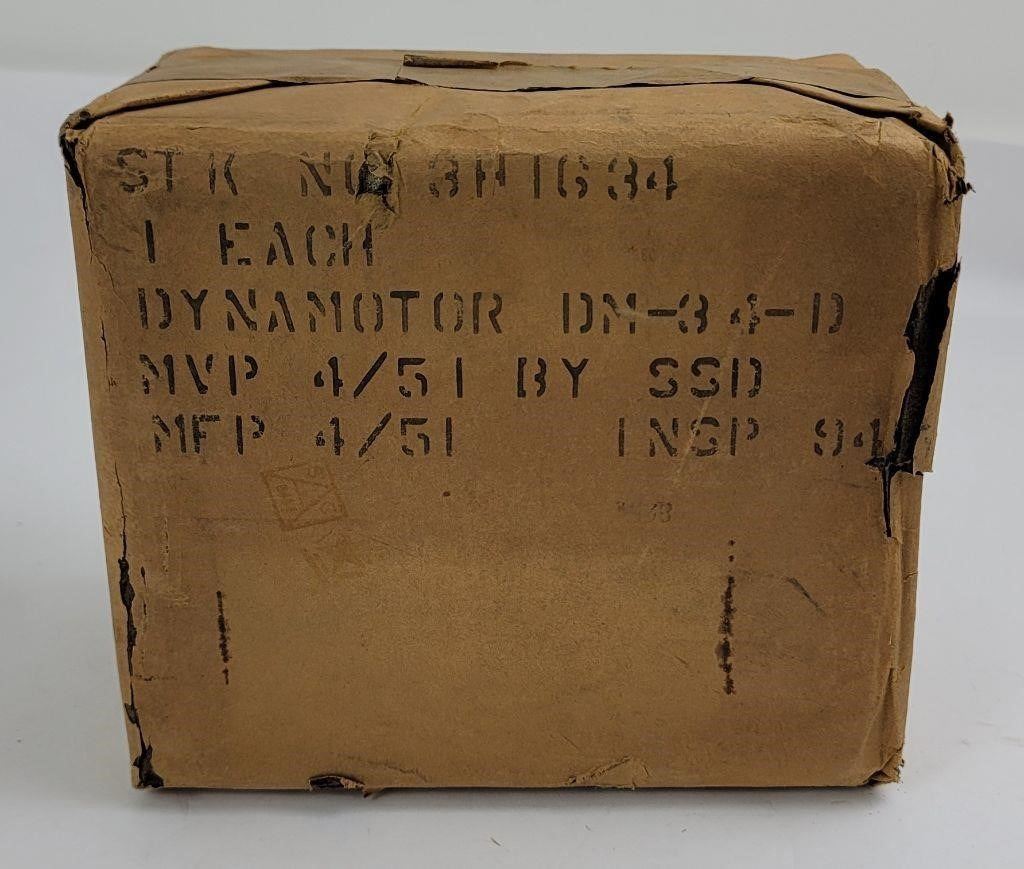 STK NO 3H1634
1 EACH
DYNAMOTOR DM-34-D
MVP 4/51 BY SSD
MFP 4/51 INSP 94